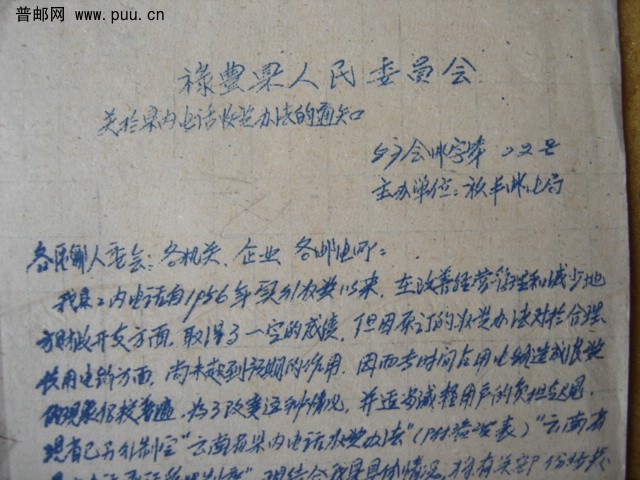 普邮网 www.puu.cn
禄豊県人民委員会
关於県内电话收费办法的通知
会邮字第 22号
主办单位：禄丰邮电局
各区乡人委会：各机关、企业 各邮电所：
我県内电话自1956年实行收费以来，在改善经营管理和减少地
方财政开支方面，取得了一定的成绩，但因原订的收费办法对於合理
使用电路方面，尚未起到预期的作用，因而长时间占用电路造成浪费
的现象仍较普遍，为了改变这种情况，并适当减轻用户的负担起见，
现省已另行制定“云南省県内电话收费办法”（附发表）“云南省
现结合我県具体情况，将有关部份